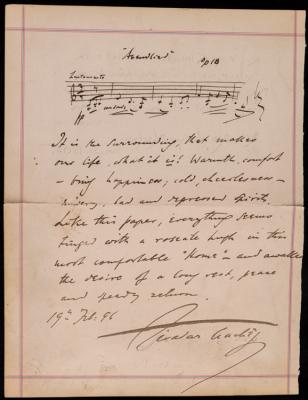 "Abendlied" Op 10
Lentamente
pp
It is the surrounding, that makes
our life, what it is! Warmth, comfort
– bring happiness; cold, cheerlessness –
misery, sad and depressed spirits.
Like this paper, everything seems
tinged with a roseate hugh in this
most comfortable "Home" – and awakes
the desire of a long rest, peace
and speedy return.
19th Feb: 96
Tivadar Nachéz